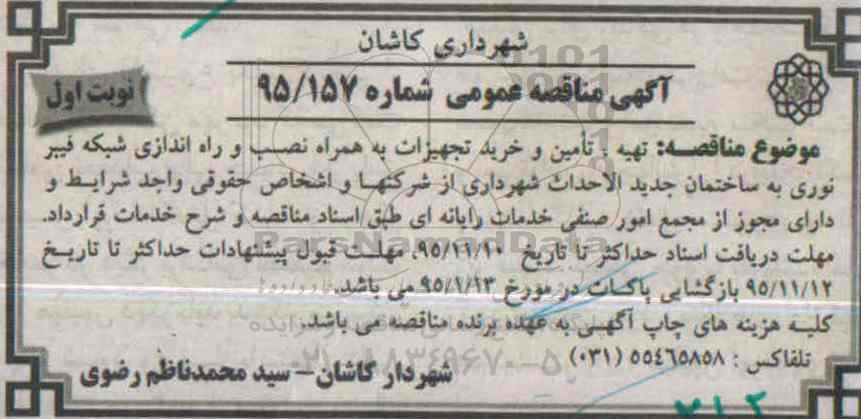 شهرداری کاشان
آگهی مناقصه عمومی شماره ۹۵/۱۵۷
نوبت اول
موضوع مناقصه: تهیه ، تأمین و خرید تجهیزات به همراه نصب و راه اندازی شبکه فیبر
نوری به ساختمان جدید الاحداث شهرداری از شرکتها و اشخاص حقوقی واجد شرایط و
دارای مجوز از مجمع امور صنفی خدمات رایانه ای طبق اسناد مناقصه و شرح خدمات قرارداد.
مهلت دریافت اسناد حداکثر تا تاریخ ۹۵/۱۱/۱۰، مهلت قبول پیشنهادات حداکثر تا تاریخ
۹۵/۱۱/۱۲ بازگشایی پاکات در مورخ ۹۵/۱/۱۳ می باشد.
کلیه هزینه های چاپ آگهی به عهده برنده مناقصه می باشد.
تلفاکس : ۵۵۴۶۵۸۵۸ (۰۳۱)
شهردار کاشان - سید محمدناظم رضوی
ParsNamadData
۰۲۱-۸۸۳۴۹۶۷۰-۵
۳۱۲